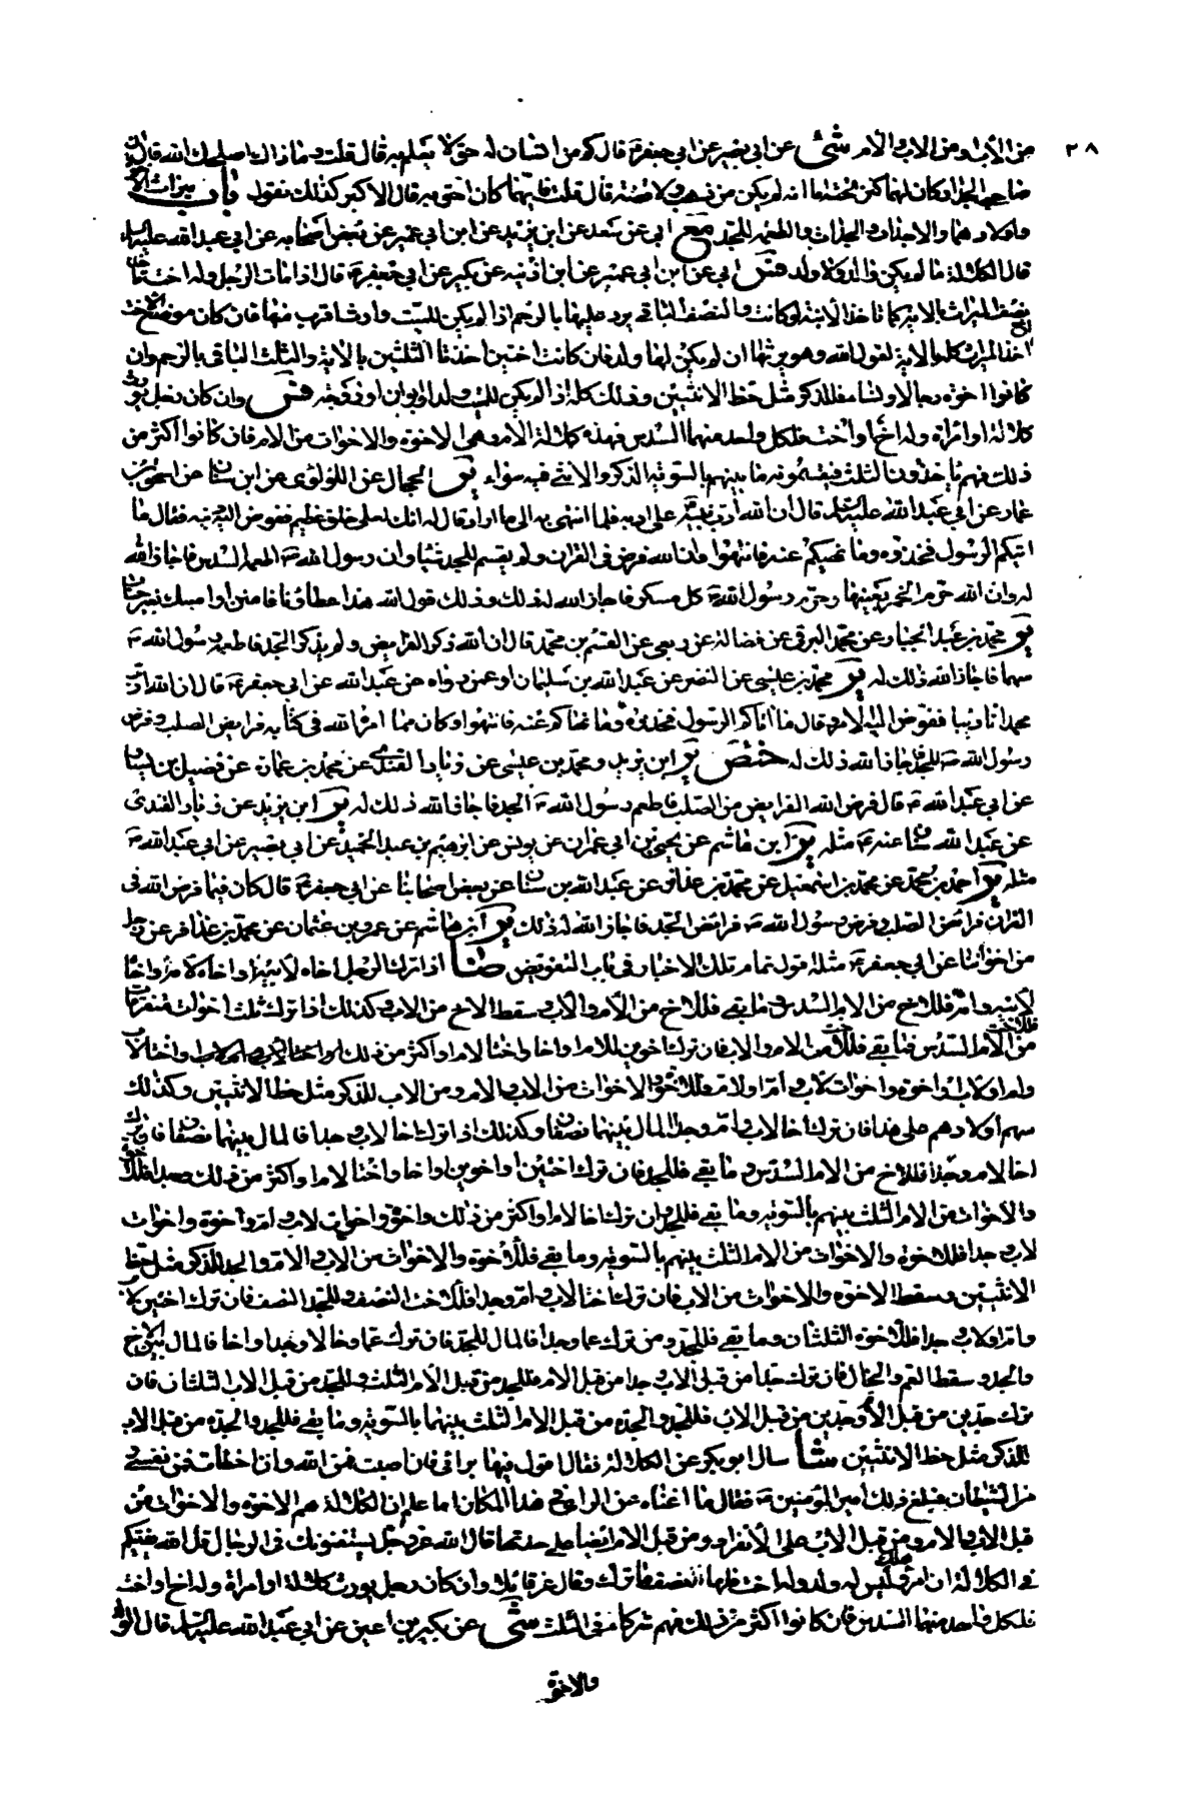 ٢٨
من الأب ومن الاب والأم شى عن ابي بصير عن ابي جعفر ع قال كم من انسان له حق لا يعلم به قال قلت وما ذاك اصلحك الله قال ان
صاحبي الجدار كان لهما كنز تحته اما انه لم يكن من ذهب ولا فضة قال قلت فايهما كان احق به قال الاكبر كذلك نقول باب ميراث الاخوة
واولادهما والاجداد والجدات والطعمة للجد مع ابي عن سعد عن ابن يزيد عن ابن ابي عمير عن بعض اصحابه عن ابي عبد الله عليه السلام
قال الكلالة ما لم يكن والد ولا ولد فس ابي عن ابن ابي عمير عن ابن اذينه عن بكير عن ابي جعفر ع قال اذا مات الرجل وله اخت تاخذ
نصف الميراث بالاية كما تاخذ الابنة لو كانت والنصف الباقي يرد عليها بالرحم اذا لم يكن للميت وارث اقرب منها فان كان موضع الاخت اخ
اخذ الميراث كله بالاية لقول الله وهو يرثها ان لم يكن لها ولد فان كانت اختين اخذتا الثلثين بالاية والثلث الباقي بالرحم وان
كانوا اخوة رجالا ونساء فللذكر مثل حظ الانثيين وذلك كله اذا لم يكن للميت ولد او ابوان او زوجة فس وان كان رجل يورث
كلالة او امراة وله اخ او اخت فلكل واحد منهما السدس فهذه كلالة الام وهي الاخوة والاخوات من الام فان كانوا اكثر من
ذلك فهم ياخذون الثلث فيقتسمونه ما بينهم بالسوية الذكر والانثى فيه سواء ير الحجال عن اللؤلؤي عن ابن سنان عن اسحق بن
عمار عن ابي عبد الله عليه السلام قال ان الله ادب نبيه على ادبه فلما انتهى به الى ما اراد قال له انك لعلى خلق عظيم ففوض اليه دينه فقال ما
اتيكم الرسول فخذوه وما نهيكم عنه فانتهوا وان الله فرض في القران ولم يقسم للجد شيئا وان رسول الله ص اطعمه السدس فاجاز الله
له وان الله حرم الخمر بعينها وحرم رسول الله ص كل مسكر فاجاز الله له ذلك وذلك قول الله هذا عطاؤنا فامنن او امسك بغير حساب
ير محمد بن عبد الجبار عن محمد البرقي عن فضالة عن ربعي عن القسم بن محمد قال ان الله ذكر الفرايض ولم يذكر الجد فاطعمه رسول الله ص
سهما فاجاز الله ذلك له ير محمد بن عيسى عن النضر عن عبد الله بن سليمان او عمن رواه عن عبد الله عن ابي جعفر ع قال ان الله ادب
محمدا تاديبا ففوض اليه الامر وقال ما اتاكم الرسول فخذوه وما نهاكم عنه فانتهوا وكان مما امر الله في كتابه فرايض الصلب وفرض
رسول الله ص للجد فاجاز الله ذلك له ختص ير ابن يزيد ومحمد بن عيسى عن زياد القندي عن محمد بن عمارة عن فضيل بن يسار
عن ابي عبد الله ع قال فرض الله الفرايض من الصلب فاطعم رسول الله ص الجد فاجاز الله ذلك له ير ابن يزيد عن زياد القندي
عن عبد الله بن سنان عنه ع مثله ير ابن هاشم عن يحيى بن ابي عمران عن يونس عن ابرهيم بن عبد الحميد عن ابي بصير عن ابي عبد الله ع
مثله ير احمد بن محمد عن محمد بن اسمعيل عن محمد بن عذافر عن عبد الله بن سنان عن بعض اصحابنا عن ابي جعفر ع قال كان فيما فرض الله في
القران فرايض الصلب وفرض رسول الله ص فرايض الجد فاجاز الله له ذلك ير ابن هاشم عن عمرو بن عثمان عن محمد بن عذافر عن رجل
من اخواننا عن ابي جعفر ع مثله اقول تمام تلك الاخبار في باب التفويض ضا اذا ترك الرجل اخاه لابيه واخاه لامه واخا
لابيه وامه فللاخ من الام السدس وما بقي فللاخ من الام والأب وسقط الاخ من الاب وكذلك اذا ترك ثلث اخوات متفرقات
من الأم السدس وما بقي فللاخت من الام والاب فان ترك اخوين للام او اخا واختا لام او اكثر من ذلك
ولام ولاب واخوة واخوات لاب وأم او لام فللاخوة والاخوات من الاب والام ومن الاب للذكر مثل حظ الانثيين وكذلك
سهم أولادهم على هذا فان ترك أخا لاب وام وجدا المال بينهما نصفان وكذلك اذا ترك اخا لاب وجدا فالمال بينهما نصفان فان ترك
اخا لام وجدا فللاخ من الام السدس وما بقي فللجد فان ترك اختين او اخوين او اخا واختا لام او اكثر من ذلك وجدا فللاخوة
والاخوات من الام الثلث بينهم بالسوية وما بقي فللجد وان ترك اخا لام او اكثر من ذلك واخوة واخوات لاب وام واخوة واخوات
لاب وجدا فللاخوة والاخوات من الام الثلث بينهم بالسوية وما بقي فللاخوة والاخوات من الاب والام والجد للذكر مثل حظ
الانثيين وسقط الاخوة والاخوات من الاب فان ترك اختا لاب وام وجدا فللاخت النصف وللجد النصف فان ترك اختين لاب
وام او لاب وجدا فللاخوة الثلثان وما بقي فللجد ومن ترك عما وجدا فالمال للجد فان ترك عما وخالا وجدا واخا فالمال بين الاخ
والجد وسقط العم والخال فان ترك جدا من قبل الاب وجدا من قبل الام فللجد من قبل الأم الثلث وللجد من قبل الاب الثلثان فان
ترك جدين من قبل الأم وجدين من قبل الاب فللجد والجدة من قبل الام الثلث بينهما بالسوية وما بقي فللجد والجدة من قبل الاب
للذكر مثل حظ الانثيين شا سال ابو بكر عن الكلالة فقال اقول فيها براي فان اصبت فمن الله وان اخطات فمن نفسي و
من الشيطان فبلغ ذلك امير المؤمنين ع فقال ما اغناه عن الراي في هذا المكان اما علم ان الكلالة هم الاخوة والاخوات من
قبل الاب والام ومن قبل الاب على الانفراد ومن قبل الام ايضا على حدتها قال الله عز وجل يستفتونك في الكلالة قل الله يفتيكم
في الكلالة ان امرؤ هلك ليس له ولد وله اخت فلها نصف ما ترك وقال عز قائل وان كان رجل يورث كلالة او امراة وله اخ او اخت
فلكل واحد منهما السدس فان كانوا اكثر من ذلك فهم شركاء في الثلث شى عن بكير بن اعين عن ابي عبد الله عليه السلام قال الولد
والاخوة